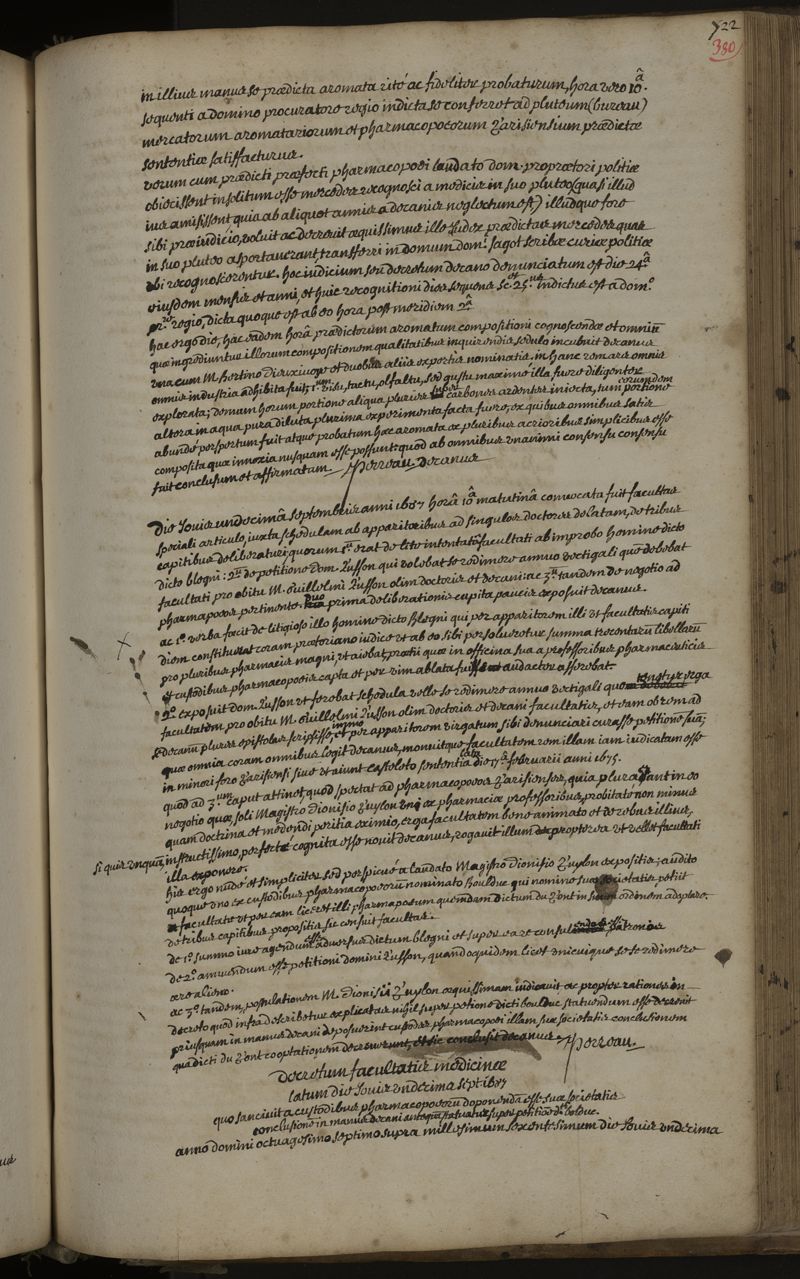 722
380
in illius manus se prædicta aromata rite ac fideliter probaturum, hora vero 10â.
sequenti a domino procuratore regio indicta se conferret ad pluteum (bureau)
mercatorum aromatariorum et pharmacopoeorum Parisiensium prædictæ
sententiæ satisfacturus.
verum cum prædicti præfecti pharmacopoei laudato dom. proprætori politiæ
obiecissent insolitum esse mercedes recognosci a medicis in suo pluteo, quasi illud
ius amisissent quia ab aliquot annis a decanis neglectum est) illudque fore
sibi præiudicio, voluit ac decrevit æquissimus ille Judex prædictas mercedes quas
in suo pluteo asportaverant, transferri in domum domi. sagot scribæ curiæ politiæ
ubi recognoscerentur. hoc iudicium seu decretum decano denunciatum est die 24â
eiusdem mensis et anni, et huic recognitioni dies sequens sc. et 25us indictus est a domo.
pr.re regio, dicta quoque est ab eo hora post meridiem 2â.
hac ergo die, hac eadem horâ prædictorum aromatum compositioni cognoscendæ et omnium
quæ ingrediuntur illorum compositionem qualitatibus inquirendis sedulo incubuit decanus
una cum M. bertino Dieuxivoye et duobus aliis expertis nominatis, in hanc rem ars omnis
omnis industria adhibita fuit, 1um visu, tactu, olfactu, sed gustu maximo illa fuere diligenter
explorata; demam horum portione aliqua pluries super carbones ardentes iniecta, tum eorumdem portione
altera in aqua pura diluta plurima experimenta facta fuere, ex quibus omnibus satis
abunde perspectum fuit atque probatum hæc aromata ex pluribus acrioribus simplicibus esse
composita quæ innoxia nusquam esse possunt: quod ab omnibus unanimi consensu consensu
fuit conclusum et affirmatum. Perreau Decanus
Die Jovis undecimâ septembris anni 1687 horâ 10â matutinâ convocata fuit facultas
speciali articulo, iuxta schedulam ab apparitoribus ad singulos doctores delatam, de tribus
capitibus deliberatura; quorum 1um erat de lite intentata facultati ab improbo homine dicto
dicto blegni: 2um de petitione dom. Lusson qui volebat se redimere annuo vectigali quod debebat
facultati pro obitu M. Guillelmi Lusson olim doctoris et decani: ac 3um tandem de negotio ad
pharmapoeos pertinente. Duo prima deliberationis capita paucis exposuit decanus.
ac 1o. verba facit de litigioso illo homine dicto blegni qui per apparitorem illi et facultatis capiti
diem constituerat coram prætoriano iudice ut ab eo sibi persolveretur summa trecentarũ libellarũ
pro pluribus pharmacis magni ut aiebat, pretii quæ in officina sua a professoribus pharmaceuticis
et custodibus pharmacopoeis capta et per vim ablata fuisse audacter asserebat.
2o. exposuit dom. Lusson ut ferebat schedula velle se redimere annuo vectigali quo erga
facultatem pro obitu M. Guillelmi Lusson olim doctoris et decani facultatis, et eam ob rem ad
se decanũ plures epistolas scripsisse, immo et per apparitorem virgatum sibi denunciari curasse petitionem suã;
quæ omnia coram omnibus legit decanus, monuitque facultatem rem illam iam iudicatam esse
in minori foro Parisiensi sive ut aiunt castoleto sententia lata die 17â februarii anni 1675.
quod ad 3um caput attinet, quod spectat ad pharmacopoeos Parisienses, quia plura erant in eo
negotio quæ soli Magistro Dionisio Puylon uni ex pharmaciæ professoribus, probitate non minus
quam doctrina et medendi peritia eximio, erga facultatem bene animato et de rebus illius,
si quis unquam, instructissimo, perfecte cognita esse novit decanus, rogavit illum propterea ut vellet facultati
illa exponere.
his ergo nude et simpliciter sed perspicue a laudato Magistro Dionisio Puylon expositis; audito
quoque uno ex custodibus pharmacopoeorũ nominato houlduc qui nomine suæ societatis petiit
a facultate ut per eam liceret illi pharmapoeum quemdam dictum du Pont in suum ordinem adoptare.
de tribus capitibus propositis sic censuit facultas.
de 1o. summo iure agendum esse adversus dictum blegni et super ea re consulendos esse patronos
de 2o. annuendum esse petitioni domini Lusson, quandoquidem licet unicuique sese redimere
ære alieno.
ac 3o. tandem, postulationem M. Dionisii Puylon æquissimam iudicavit ac propter rationes in
decreto quod infra describetur explicatas nihil super petitione dicti boulduc statuendum esse decrevit
priusquam in manus decani deposuerint custodes pharmacopoei illam suæ societatis conclusionem
qua dicti du Pont cooptationem decreverunt, et sic conclusit decanus. Perreau.
Decretum facultatis medicinæ
latum die Jovis undecima septi 87
quo sancivit a custodibus pharmacopoeorũ deponenda esse suæ societatis
conclusione in manus decani antequam statuatur super petitione de boulduc.
anno domini octuagesimo septimo supra millesimum sexcentesimum die Jovis undecima